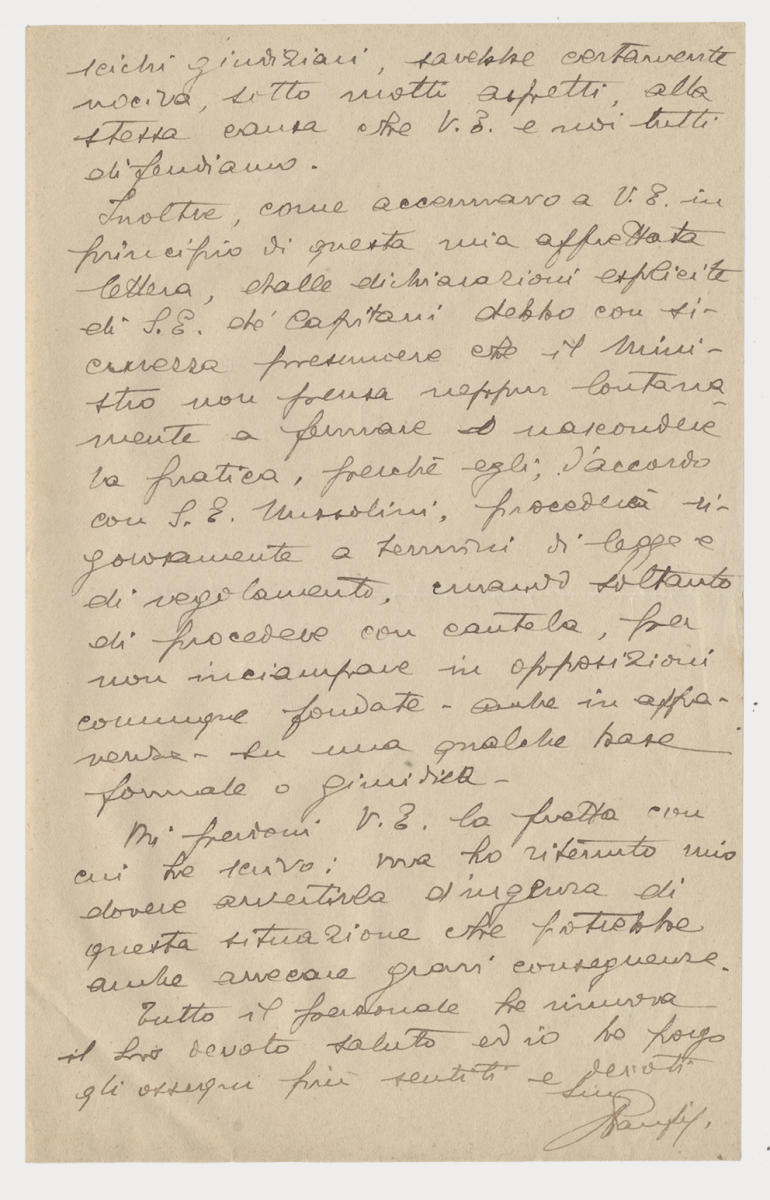 scichi giudiziari, sarebbe certamente
nociva, sotto molti aspetti, alla
stessa causa che V. E. e noi tutti
difendiamo.
Inoltre, come accennavo a V. E. in
principio di questa mia affrettata
lettera, dalle dichiarazioni esplicite
di S. E. de' Capitani debbo con si-
curezza presumere che il Mini-
stro non pensa neppur lontana-
mente a fermare o nascondere
la pratica, perchè egli, d'accordo
con S. E. Mussolini, procederà ri-
gorosamente a termini di legge e
di regolamento, curando soltanto
di procedere con cautela, per
non inciampare in opposizioni
comunque fondate - anche in appa-
renza - su una qualche base
formale o giuridica -
Mi perdoni V. E. la fretta con
cui Le scrivo: ma ho ritenuto mio
dovere avvertirla d'urgenza di
questa situazione che potrebbe
anche arrecare gravi conseguenze.
Tutto il personale Le rinnova
il suo devoto saluto ed io Le porgo
gli ossequi più sentiti e devoti
Suo